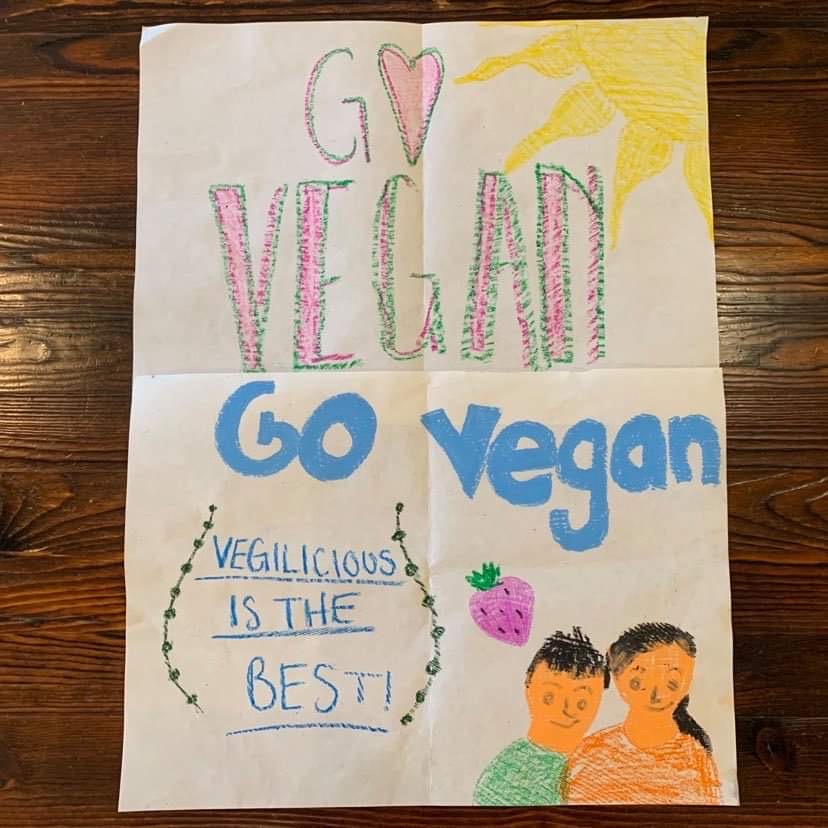 GO
VEGAN
GO vegan
VEGILICIOUS
IS THE
BEST!